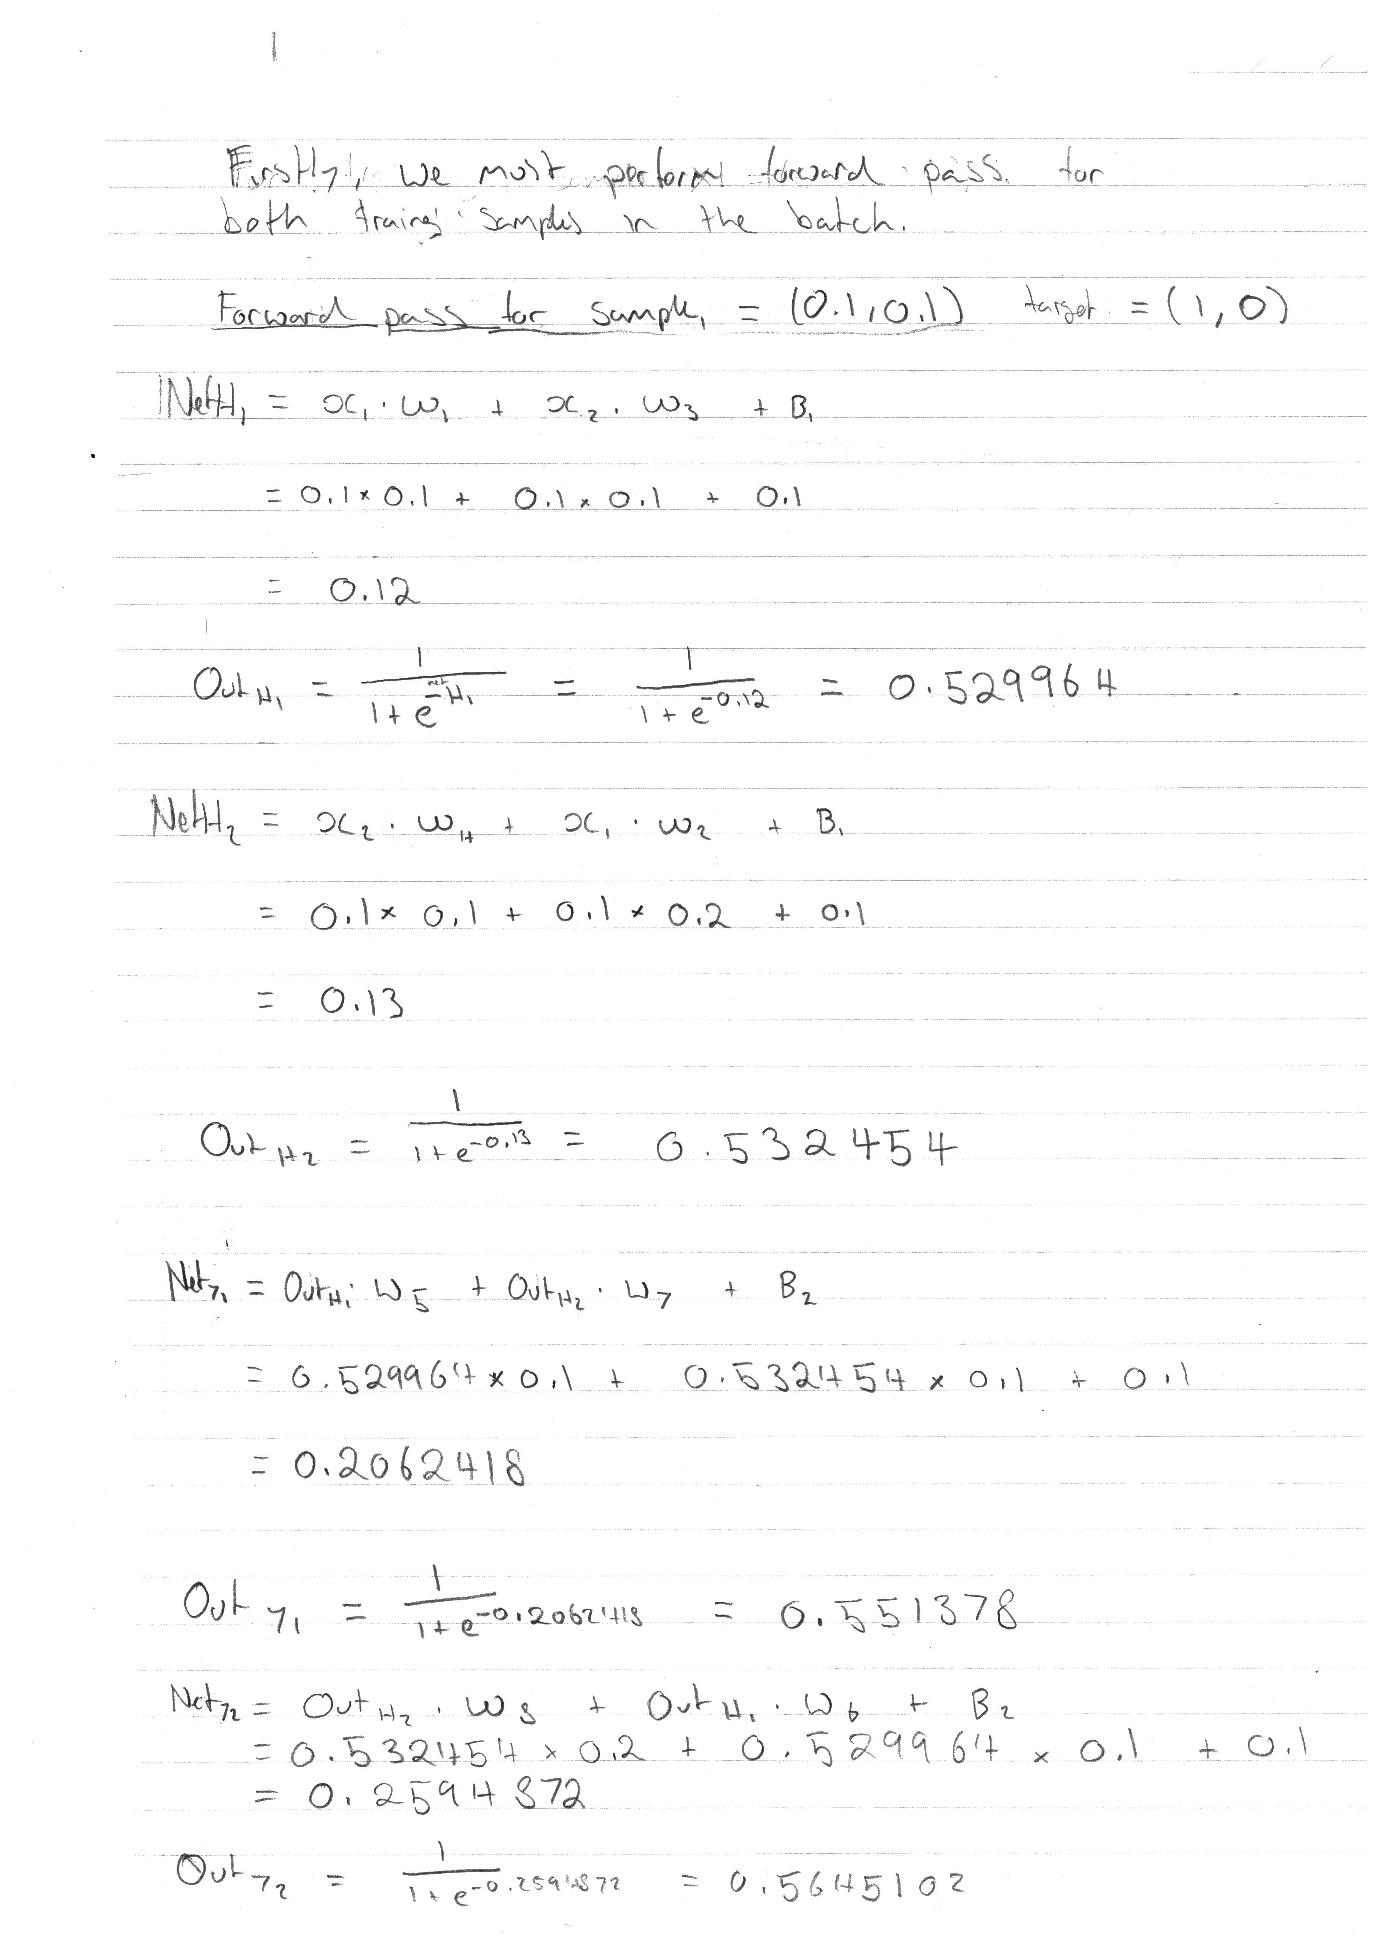 1
Firstly, we must perform forward pass for
both training samples in the batch.
Forward pass for sample, = (0.1,0.1) target = (1,0)
NetH₁ = x₁ · w₁ + x₂ · w₃ + B₁
= 0.1 × 0.1 + 0.1 × 0.1 + 0.1
= 0.12
Out H₁ = 1/(1+e^-netH₁) = 1/(1+e^-0.12) = 0.529964
NetH₂ = x₂ · w₄ + x₁ · w₂ + B₁
= 0.1 × 0.1 + 0.1 × 0.2 + 0.1
= 0.13
Out H₂ = 1/(1+e^-0.13) = 0.532454
Net y₁ = Out H₁ · w₅ + Out H₂ · w₇ + B₂
= 0.529964 × 0.1 + 0.532454 × 0.1 + 0.1
= 0.2062418
Out y₁ = 1/(1+e^-0.2062418) = 0.551378
Net y₂ = Out H₂ · w₈ + Out H₁ · w₆ + B₂
= 0.532454 × 0.2 + 0.529964 × 0.1 + 0.1
= 0.2594872
Out y₂ = 1/(1+e^-0.2594872) = 0.5645102